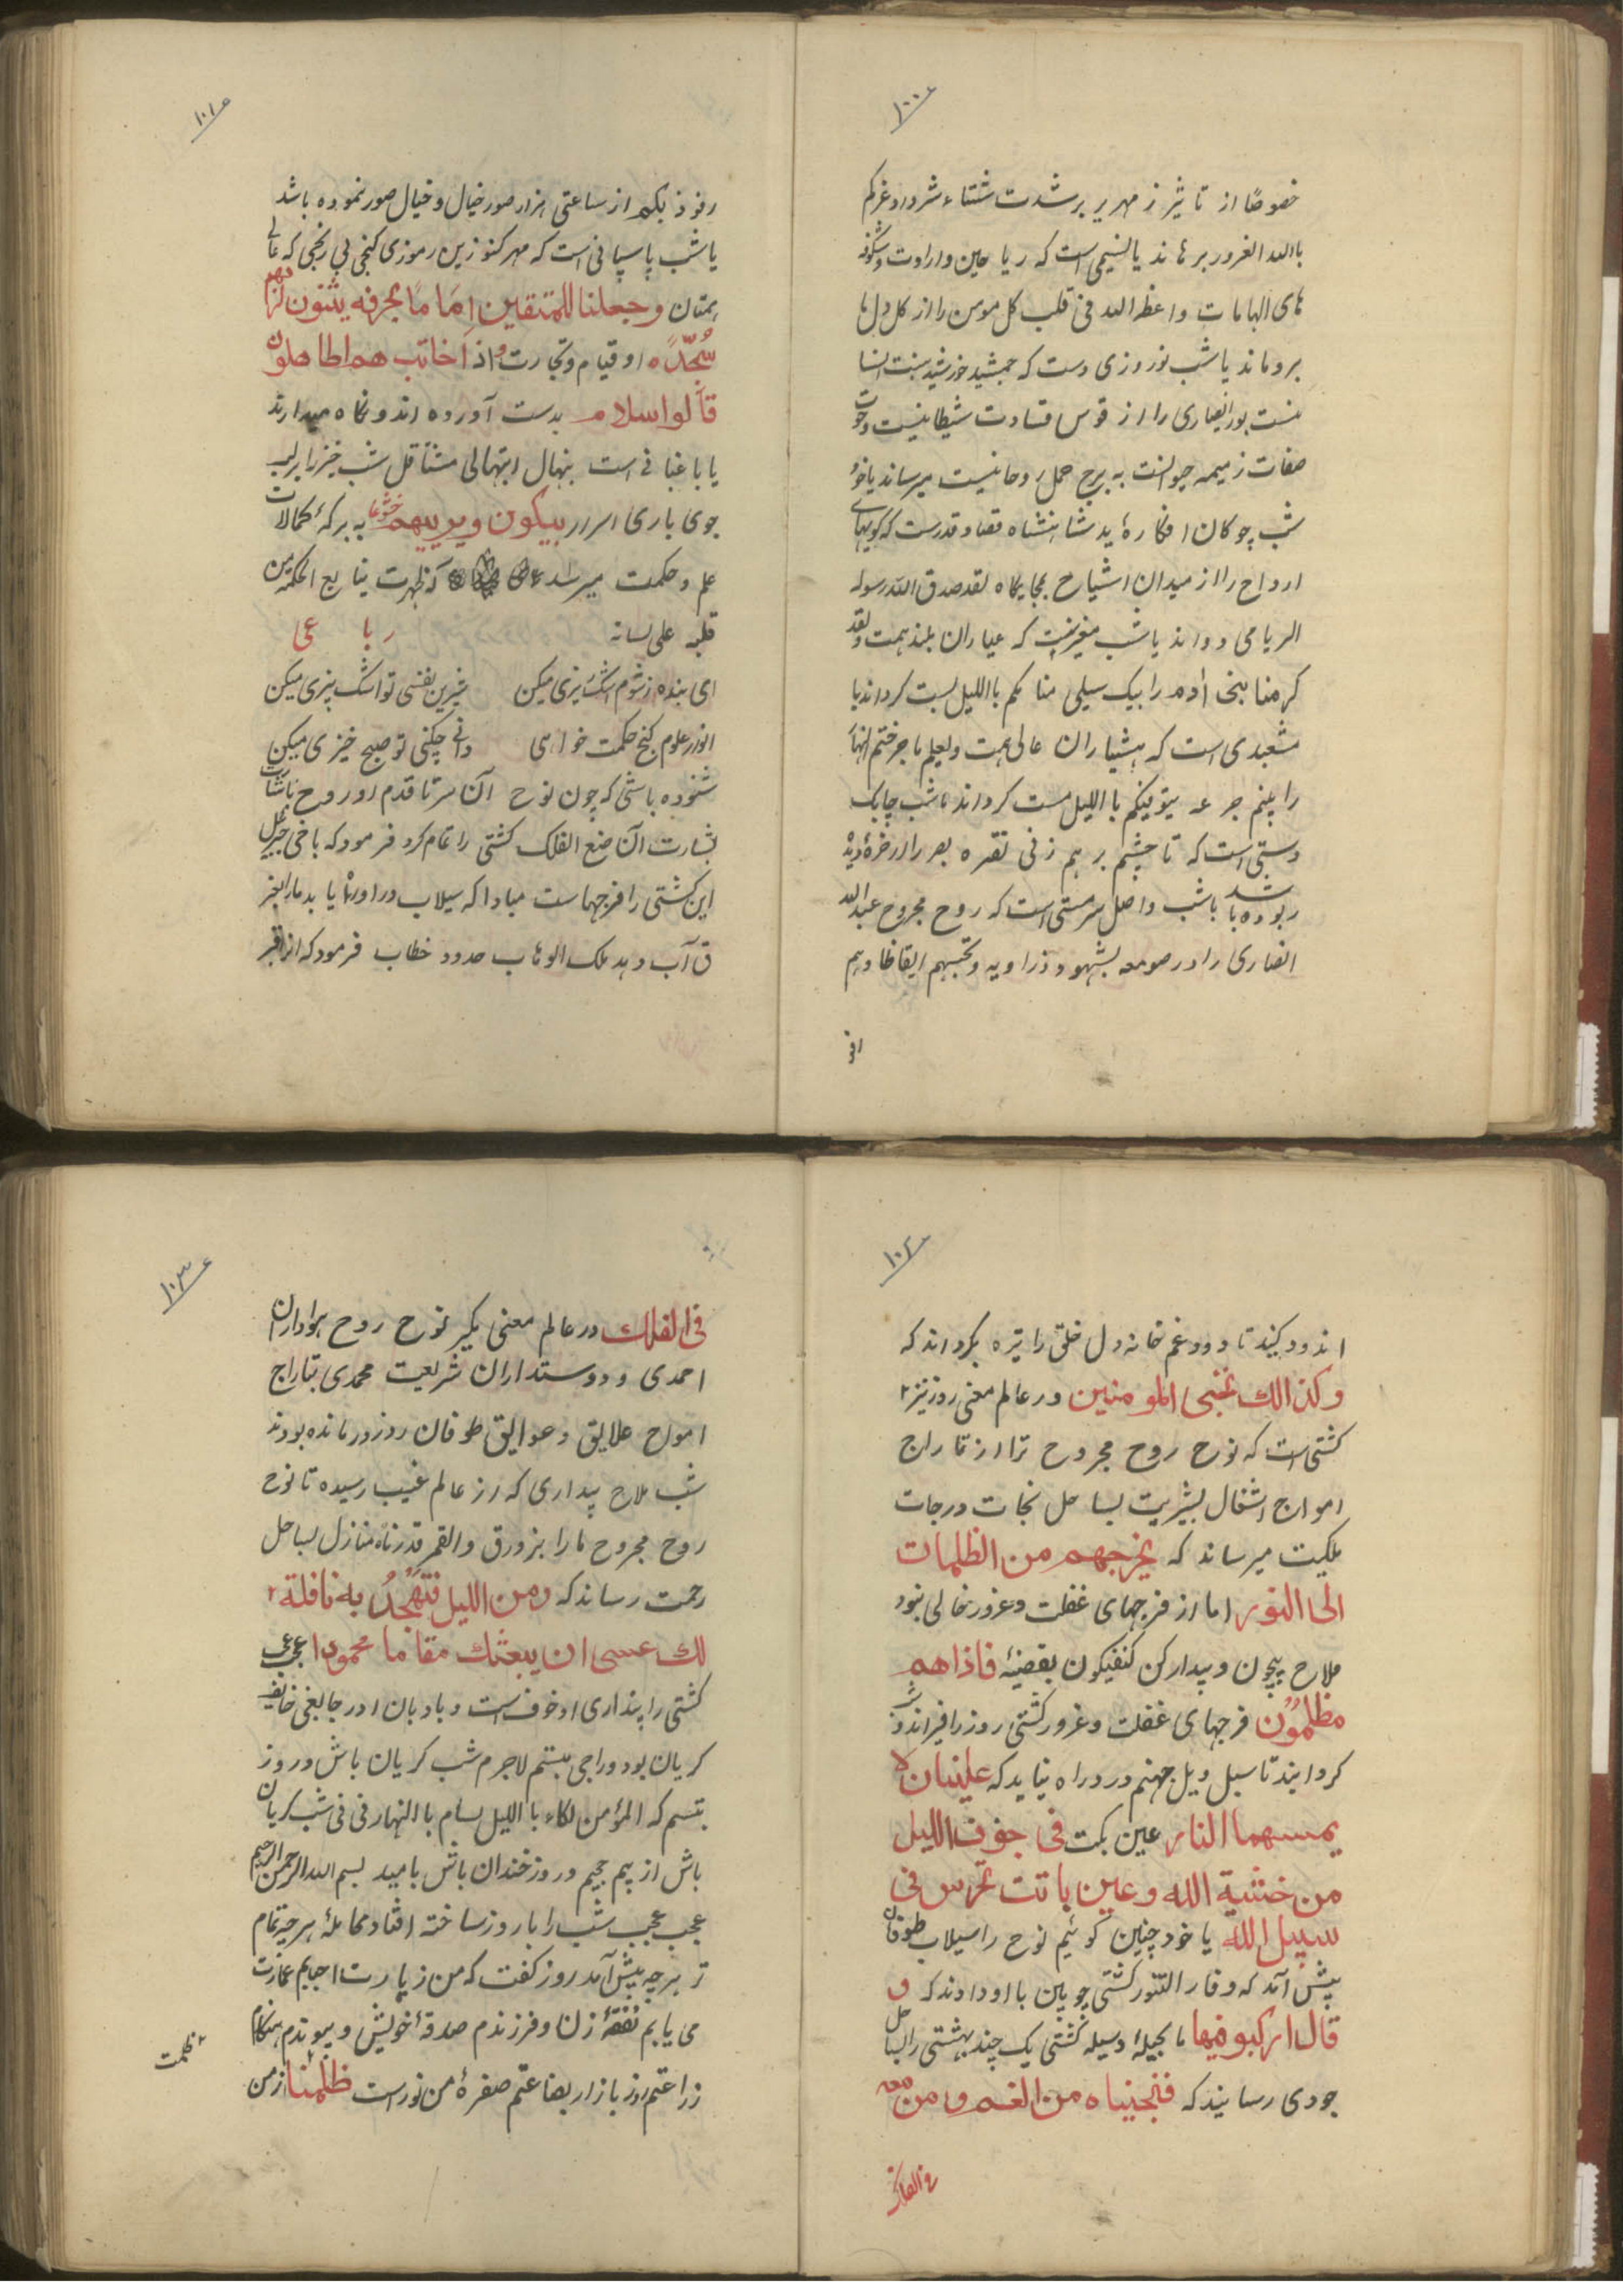 ١٠٠
خصوصًا از تاثیر زمهریر برشدت شتاء شرور و غرکم
باالله الغرور برهاند یا نسیمی است که ریاحین وارادت وشکوفه
های الهامات واعظ الله فی قلب کل مومن را از کل دل ها
بروماند یاشب نوروزی دست که جمشید خورشید
را از قوس قساوت شیطانیت
صفات ذمیمه حیوانیت به برج حمل روحانیت میرساند یاخود
شب چوکان شاهنشاه قضا و قدرست که کویهای
ارواح را از میدان اشباح بجایکاه لقد صدق الله رسوله
الریا می دواند یاشب است که عیاران بلند همت ولقد
کرمنا بنی آدم را بیک سیلی منامکم باللیل بست کرداند یا
مشعبدی است که هشیاران عالی همت ویعلم ماجرحتم بالنهار
را بنیم جرعه یتوفیکم باللیل مست کرداند یاشب چابک
دستی است که تا چشم برهم زنی نقره بصر را از خزهٔ دیده
ربوده باشد یاشب واصل سرمستی است که روح مجروح عبدالله
انصاری را در صومعه شهود و زاویه وتحسبهم ایقاظا وهم
١٠١
رقود بکم از ساعتی هزار صور خیال و خیال صور نموده باشد
یاشب پاسبانی است که مهر کنوزین رموزی کنجی بی رنجی که عالی
همتان وجعلنا للمتقین اماما بحرفه یبیتون لربهم
سُجّدًا و قیام وتجارت و اذا خاطبهم الجاهلون
قالوا سلاما بدست آورده اند ونکاه میدارند
یا باغبانی است نهال ابتهالی شب خیز را بر لب
جوی باری اسرار یبکون ویزیدهم خشوعا به برکهٔ کمالات
علم و حکمت میرسد که ظهرت ینابیع الحکمة من
قلبه علی لسانه رباعی
ای بنده ز شوم اشک ریزی میکن شیرین نفسی تو اشک ریزی میکن
انوار علوم کنج حکمت خواهی دانی چکنی تو صبح خیزی میکن
شنوده باشی که چون نوح آن سر تا قدم او روح باشارت
بشارت آن صنع الفلک کشتی را تمام کرد فرمود که یا اخی جبرئیل
این کشتی را فرجهاست مبادا که سیلاب درآورد یا بد ما را بغر
ق آب دهد ملک الوهاب خطاب فرمود که
١٠٢
اندود کنید تا دود غم خانه دل خلق را تیره نکرداند که
وکذالک ننجی المومنین ودر عالم معنی روز نیز
کشتی است که نوح روح مجروح ترا از تاراج
امواج اشغال بشریت بساحل نجات درجات
ملکیت میرساند که یخرجهم من الظلمات
الی النور اما از فرجهای غفلت و غرور خالی نبود
ملاح بیچون و بیدار کن کنفیکون بقضیهٔ فاذاهم
مظلمون فرجهای غفلت و غرور کشتی روز را قیراندود
کردانیدند تا سیل ویل جهنم درو راه نیابد که عینان لا
یمسهما النار عین بکت فی جوف اللیل
من خشیة الله وعین باتت تحرس فی
سبیل الله یا خود چنین کوئیم نوح را سیلاب طوفان
پیش آمد که وفار التنور کشتی چوبین با او دادند که و
قال ارکبو فیها تا بحیلهٔ وسیله کشتی یک چند بهشتی را بساحل
جودی رسانیند که فنجیناه من الغم و من معه
فی الفلک
١٠٣
فی الفلک در عالم معنی بکیر نوح روح هواداران
احمدی و دوستداران شریعت محمدی بتاراج
امواج علایق و عوایق طوفان روز درمانده بودند
شب ملاح بیداری که از عالم غیب رسیده تا نوح
روح مجروح ما را بزورق والقمر قدرناه منازل بساحل
رحمت رساند که ومن اللیل فتهجّدُ به نافلة
لک عسی ان یبعثک مقاما محمودا عجب عجب
کشتی را پنداری او خوف است و بادبان او رجا یعنی خایف
کریان بود وراجی متبسم لاجرم شب کریان باش و روز
متبسم که المؤمن بکاء باللیل بسام باالنهار فی فی شب کریان
باش از بیم جحیم و روز خندان باش بامید بسم الله الرحمن الرحیم
عجب عجب شب را با روز ساخته افتاد مجاملهٔ هرچه تمام
تر هرچه پیش آمد روز کفت که من زیارت احیایم عمارت
می یابم نفقهٔ زن و فرزندم صدقهٔ خویش و پیوندم هنکام
زراعتم روز بازار بضاعتم صفرهٔ من نور است ظلمنا از من
ظلمت